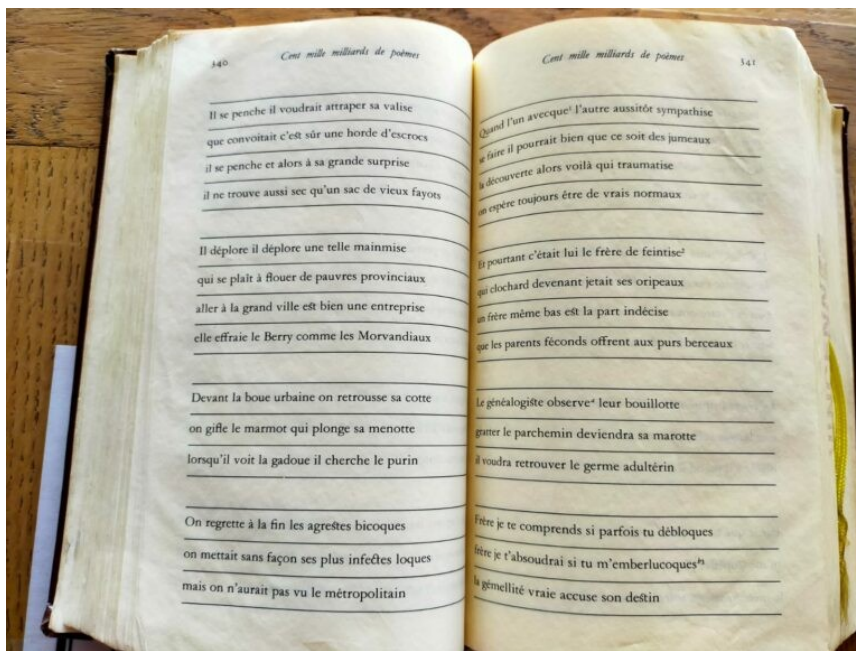 340
Cent mille milliards de poèmes
Il se penche il voudrait attraper sa valise
que convoitait c'est sûr une horde d'escrocs
il se penche et alors à sa grande surprise
il ne trouve aussi sec qu'un sac de vieux fayots
Il déplore il déplore une telle mainmise
qui se plaît à flouer de pauvres provinciaux
aller à la grand ville est bien une entreprise
elle effraie le Berry comme les Morvandiaux
Devant la boue urbaine on retrousse sa cotte
on gifle le marmot qui plonge sa menotte
lorsqu'il voit la gadoue il cherche le purin
On regrette à la fin les agrestes bicoques
on mettait sans façon ses plus infectes loques
mais on n'aurait pas vu le métropolitain
Cent mille milliards de poèmes
341
Quand l'un avecque¹ l'autre aussitôt sympathise
se faire il pourrait bien que ce soit des jumeaux
la découverte alors voilà qui traumatise
on espère toujours être de vrais normaux
Et pourtant c'était lui le frère de feintise²
qui clochard devenant jetait ses oripeaux
un frère même bas est la part indécise
que les parents féconds offrent aux purs berceaux
Le généalogiste observe⁴ leur bouillotte
gratter le parchemin deviendra sa marotte
il voudra retrouver le germe adultérin
Frère je te comprends si parfois tu débloques
frère je t'absoudrai si tu m'emberlucoques
la gémellité vraie accuse son destin